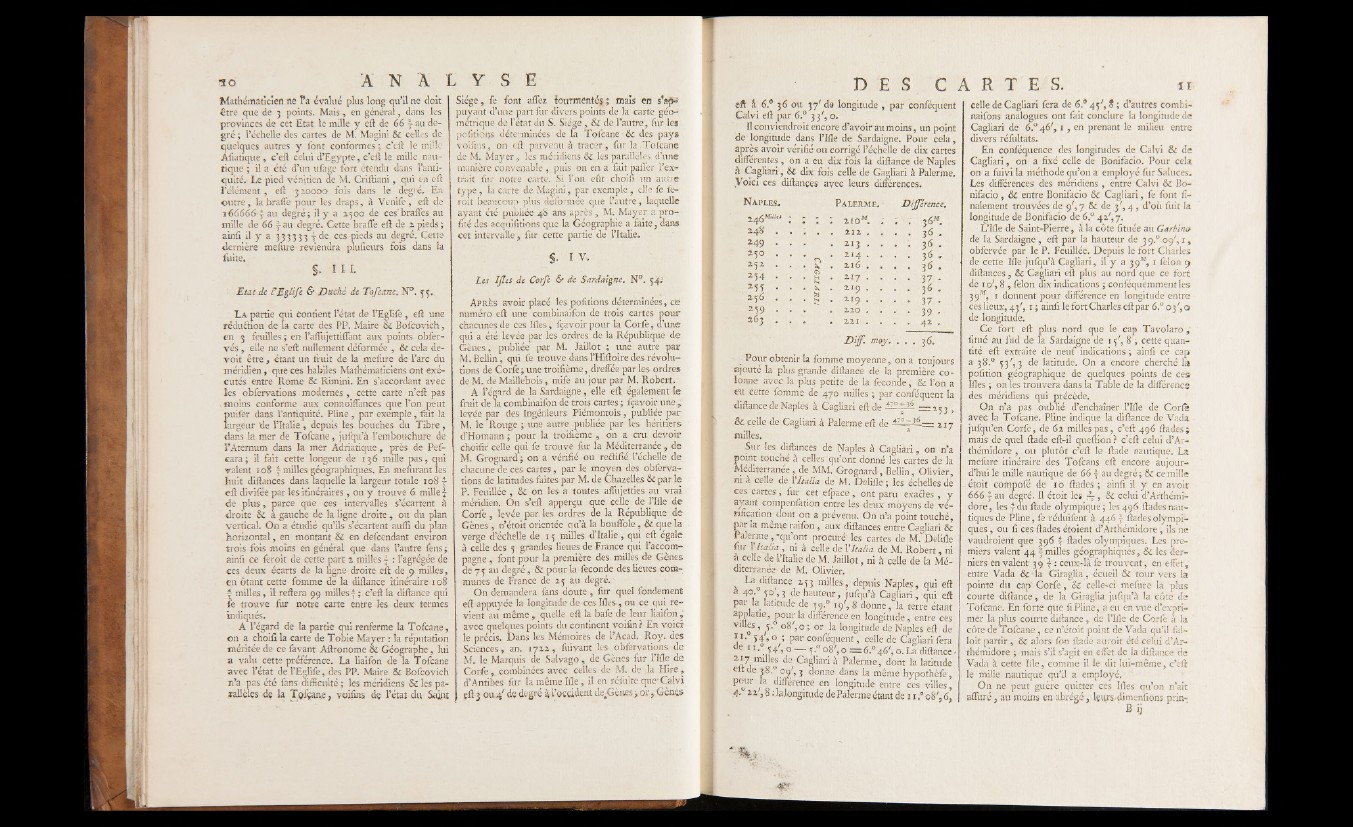 10 A N A L Y S E
Mathématicien ne l'a évalué plus long qu'il ne doit
être que de 3 points. Mais, en général, dans les
provinces de cet Etat le mille y est de 66 ⅔ au de-
gré ; l'échelle des cartes de M. Magini & celles de
quelques autres y sont conformes ; c'est le mille
Asiatique, c'est celui d'Egypte, c'est le mille nau-
tique ; il a été d'un usage fort étendu dans l'anti-
quité. Le pied vénitien de M. Cristiani, qui en est
l'élément, est 320000 fois dans le degré. En
outre, la brasse pour les draps, à Venise, est de
166666 ⅔ au degré ; il y a 2500 de ces brasses au
mille de 66 ⅔ au degré. Cette brasse est de 2 pieds ;
ainsi il y a 333333 ⅓ de ces pieds au degré. Cette
dernière mesure reviendra plusieurs fois dans la
suite.
§. III.
Etat de l'Eglise & Duché de Toscane. N°. 55.
LA partie qui contient l'état de l'Eglise, est une
réduction de la carte des PP. Maire & Boscovich,
en 3 feuilles ; en l'assujettissant aux points obser-
vés, elle ne s'est nullement déformée, & cela de-
voit être, étant un fruit de la mesure de l'arc du
méridien, que ces habiles Mathématiciens ont exé-
cutés entre Rome & Rimini. En s'accordant avec
les observations modernes, cette carte n'est pas
moins conforme aux connoissances que l'on peut
puiser dans l'antiquité. Pline, par exemple, fait la
largeur de l'Italie, depuis les bouches du Tibre,
dans la mer de Toscane, jusqu'à l'embouchure de
l'Aternum dans la mer Adriatique, près de Pes-
cara ; il fait cette longeur de 136 mille pas, qui
valent 108 milles géographiques. En mesurant les
huit distances dans laquelle la largeur totale 108
est divisée par les itinéraires, on y trouve 6 mille
de plus, parce que ces intervalles s'écartent à
droite & à gauche de la ligne droite, ou du plan
vertical. On a étudié qu'ils s'écartent aussi du plan
horizontal, en montant & en descendant environ
trois fois moins en général que dans l'autre sens ;
ainsi ce seroit de cette part 2 milles : l'agrégée de
ces deux écarts de la ligne droite est de 9 milles,
en ôtant cette somme de la distance itinéraire 108
milles, il restera 99 milles ; c'est la distance qui
se trouve sur notre carte entre les deux termes
indiqués.
A l'égard de la partie qui renferme la Toscane,
on a choisi la carte de Tobie Mayer : la réputation
méritée de ce savant Astronome & Géographe, lui
a valu cette préférence. La liaison de la Toscane
avec l'état de l'Eglise, des PP. Maire & Boscovich
n'a pas été sans difficulté ; les méridiens & les pa-
rallèles de la Toscane, voisins de l'état du Saint
Siége, se sont assez tourmentés ; mais en s'ap-
puyant d'une part sur divers points de la carte géo-
métrique de l'état du S. Siége, & de l'autre, sur les
positions déterminées de la Toscane & des pays
voisins, on est parvenu à tracer, sur la Toscane
de M. Mayer, les méridiens & les paralleles d'une
manière convenable, puis on en a fait passer l'ex-
trait sur notre carte. Si l'on eût choisi un autre
type, la carte de Magini, par exemple, elle se se-
roit beaucoup plus déformée que l'autre, laquelle
ayant été publiée 48 ans après, M. Mayer a pro-
fité des acquisitions que la Géographie a faite, dans
cet intervalle, sur cette partie de l'Italie.
§. IV.
Les Isles de Corse & de Sardaigne. N°. 54.
APRÈS avoir placé les positions déterminées, ce
numéro est une combinaison de trois cartes pour
chacunes de ces Isles, sçavoir pour la Corse, d'une
qui a été levée par les ordres de la République de
Gènes, publiée par M. Jaillot ; une autre par
M. Bellin, qui se trouve dans l'Histoire des révolu-
tions de Corse ; une troisième, dressée par les ordres
de M. de Maillebois, mise au jour par M. Robert.
A l'égard de la Sardaigne, elle est également le
fruit de la combinaison de trois cartes ; sçavoir une,
levée par des Ingénieurs Piémontois, publiée par
M. le Rouge ; une autre publiée par les héritiers
d'Homann ; pour la troisième, on a cru devoir
choisir celle qui se trouve sur la Méditerranée, de
M. Grognard ; on a vérifié ou rectifié l'échelle de
chacune de ces cartes, par le moyen des observa-
tions de latitudes faites par M. de Chazelles & par le
P. Feuillée, & on les a toutes assujetties au vrai
méridien. On s'est apperçu que celle de l'Isle de
Corse, levée par les ordres de la République de
Gènes, n'étoit orientée qu'à la boussole, & que la
verge d'échelle de 15 milles d'Italie, qui est égale
à celle des 5 grandes lieues de France qui l'accom-
pagne, sont pour la première des milles de Gènes
de 75 au degré, & pour la seconde des lieues com-
munes de France de 25 au degré.
On demandera sans doute, sur quel fondement
est appuyée la longitude de ces Isles, ou ce qui re-
vient au même, quelle est la base de leur liaison,
avec quelques points du continent voisin ? En voici
le précis. Dans les Mémoires de l'Acad. Roy. des
Sciences, an. 1722, suivant les observations de
M. le Marquis de Salvago, de Gènes sur l'Isle de
Corse, combinées avec celles de M. de la Hire,
d'Antibes sur la même Isle, il en résulte que Calvi
est 3 ou 4' de degré à l'occident de Gènes ; or, Gènes
DES CARTES. 11
est à 6.° 36 ou 37' de longitude, par conséquent
Calvi est par 6.° 33', 0.
Il conviendroit encore d'avoir au moins, un point
de longitude dans l'Isle de Sardaigne. Pour cela,
après avoir vérifié ou corrigé l'échelle de dix cartes
différentes, on a eu dix fois la distance de Naples
à Cagliari, & dix fois celle de Gagliari à Palerme.
Voici ces distances avec leurs différences.
NAPLES. PALERME. Différence.
246 Milles . . . . 210 M. . . . 36 M.
248 . . . . . 212 . . . . 36 .
249 . . . . . 213 . . . . 36 .
250 . . . . . 214 . . . . 36 .
252 . . . . . 216 . . . . 36 .
254 . . . . . 217 . . . . 37 .
255 . . . . . 219 . . . . 36 .
256 . . . . . 219 . . . . 37 .
259 . . . . . 220 . . . . 39 .
263 . . . . . 221 . . . . 42 .
CAGLIARI
Diff. moy. . . . 36.
Pour obtenir la somme moyenne, on a toujours
ajouté la plus grande distance de la première co-
lonne avec la plus petite de la seconde, & l'on a
eu cette somme de 470 milles ; par conséquent la
distance de Naples à Cagliari est de 470 + 36 / 2 = 253,
& celle de Cagliari à Palerme est de 470 − 36 / 2 = 217
milles.
Sur les distances de Naples à Cagliari, on n'a
point touché à celles qu'ont donné les cartes de la
Méditerranée, de MM. Grognard, Bellin, Olivier,
ni à celle de l'Italia de M. Delisle ; les échelles de
ces cartes, sur cet espace, ont paru exactes, y
ayant compensation entre les deux moyens de vé-
rification dont on a prévenu. On n'a point touché,
par la même raison, aux distances entre Cagliari &
Palerme, qu'ont procuré les cartes de M. Delisle
sur l'Italia, ni à celle de l'Italia de M. Robert, ni
à celle de l'Italie de M. Jaillot, ni à celle de la Mé-
diterranée de M. Olivier.
La distance 253 milles, depuis Naples, qui est
à 40.° 50', 3 de hauteur, jusqu'à Cagliari, qui est
par la latitude de 39.° 19', 8 donne, la terre étant
applatie, pour la différence en longitude, entre ces
villes, 5.° 08', 0 ; or la longitude de Naples est de
11.° 54', 0 ; par conséquent, celle de Cagliari sera
de 11.° 54', 0 — 5.° 08', 0 = 6.° 46', 0. La distance
217 milles de Cagliari à Palerme, dont la latitude
est de 38.° 09', 3 donne dans la même hypothèse,
pour la différence en longitude entre ces villes,
4.° 22', 8 : la longitude de Palerme étant de 11.° 08', 6,
celle de Cagliari sera de 6.° 45', 8 ; d'autres combi-
naisons analogues ont fait conclure la longitude de
Cagliari de 6.° 46', 1, en prenant le milieu entre
divers résultats.
En conséquence des longitudes de Calvi & de
Cagliari, on a fixé celle de Bonifacio. Pour cela
on a suivi la méthode qu'on a employé sur Saluces.
Les différences des méridiens, entre Calvi & Bo-
nifacio, & entre Bonifacio & Cagliari, se sont fi-
nalement trouvées de 9', 7 & de 3', 4, d'où suit la
longitude de Bonifacio de 6.° 42', 7.
L'Isle de Saint-Pierre, à la côte située au Garbino
de la Sardaigne, est par la hauteur de 39.° 09', 1,
observée par le P. Feuillée. Depuis le fort Charles
de cette Isle jusqu'à Cagliari, il y a 39 M, 1 selon 9
distances, & Cagliari est plus au nord que ce fort
de 10', 8, selon dix indications ; conséquemment les
39 M, 1 donnent pour différence en longitude entre
ces lieux, 43', 1 ; ainsi le fort Charles est par 6.° 03', 0
de longitude.
Ce fort est plus nord que le cap Tavolaro,
situé au sud de la Sardaigne de 15', 8, cette quan-
tité est extraite de neuf indications ; ainsi ce cap
a 38.° 53', 3 de latitude. On a encore cherché la
position géographique de quelques points de ces
Isles ; on les trouvera dans la Table de la différence
des méridiens qui précéde.
On n'a pas oublié d'enchaîner l'Isle de Corse
avec la Toscane. Pline indique la distance de Vada
jusqu'en Corse, de 62 milles pas, c'est 496 stades ;
mais de quel stade est-il question ? c'est celui d'Ar-
thémidore, ou plutôt c'est le stade nautique. La
mesure itinéraire des Toscans est encore aujour-
d'hui le mille nautique de 66 ⅔ au degré ; & ce mille
étoit composé de 10 stades ; ainsi il y en avoit
666 ⅔ au degré. Il étoit les, & celui d'Arthémi-
dore, les du stade olympique ; les 496 stades nau-
tiques de Pline, se réduisent à 446 stades olympi-
ques, ou si ces stades étoient d'Arthémidore, ils ne
vaudroient que 396 stades olympiques. Les pre-
miers valent 44 milles géographiques, & les der-
niers en valent 39 : ceux-là se trouvent, en effet,
entre Vada & la Giraglia, écueil & tour vers la
pointe du cap Corse, & celle-ci mesure la plus
courte distance, de la Giraglia jusqu'à la côte de
Toscane. En sorte que si Pline, a eu en vue d'expri-
mer la plus courte distance, de l'Isle de Corse à la
côte de Toscane, ce n'étoit point de Vada qu'il fal-
loit partir, & alors son stade auroit été celui d'Ar-
thémidore ; mais s'il s'agit en effet de la distance de
Vada à cette Isle, comme il le dit lui-même, c'est
le mille nautique qu'il a employé.
On ne peut guère quitter ces Isles qu'on n'ait
assuré, au moins en abrégé, leurs dimensions prin-
B ij